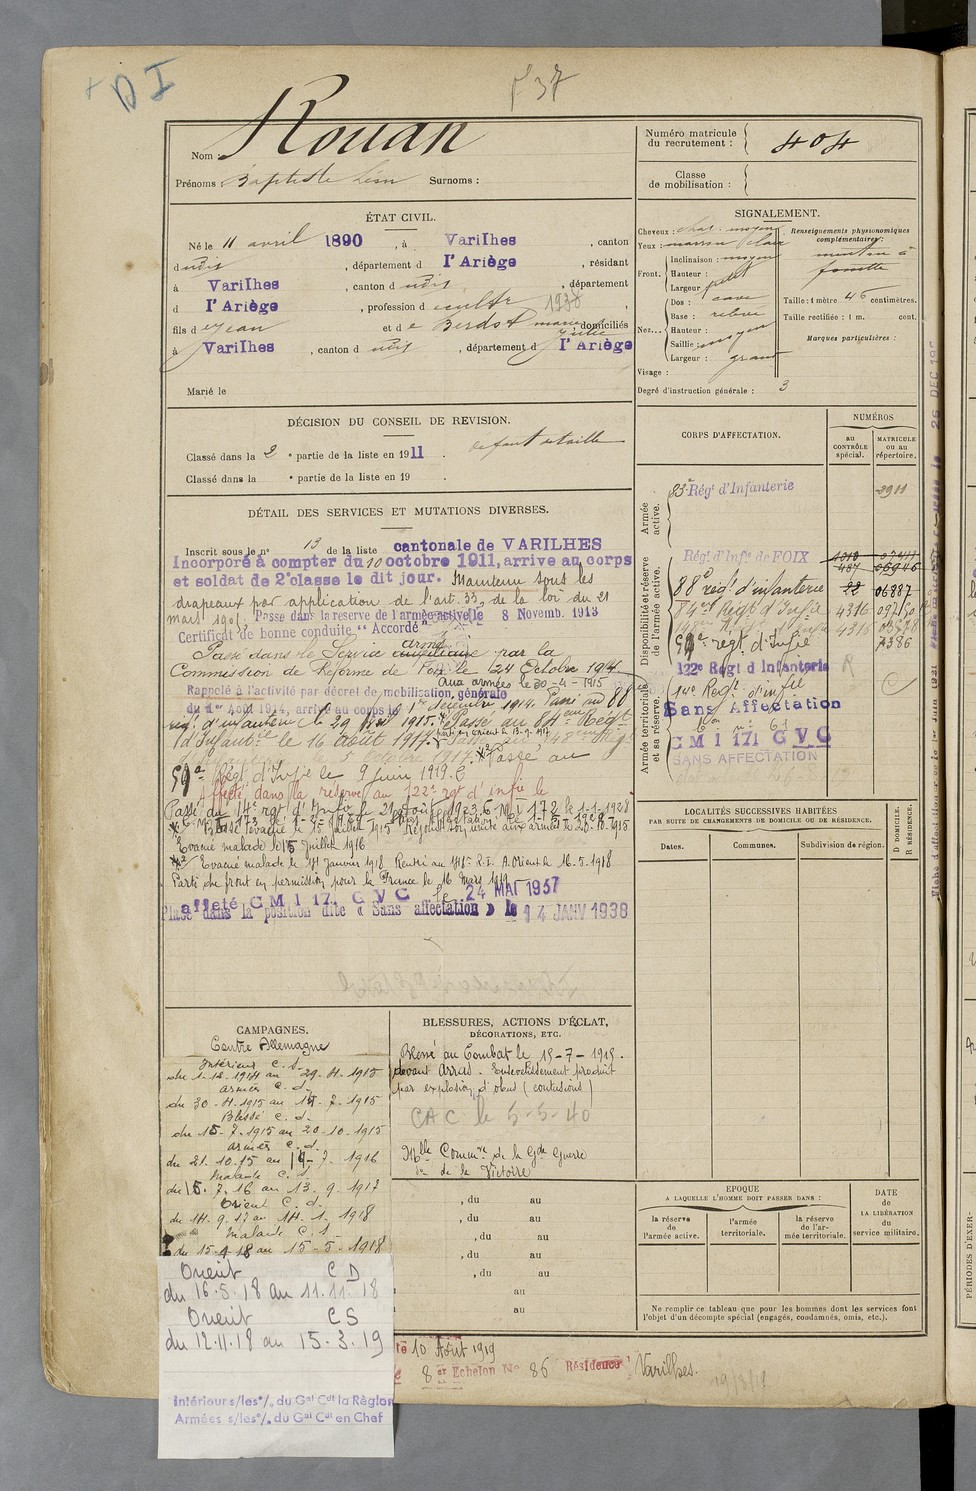 D I
P 37
Nom Rouan
Prénoms : Baptiste Léon Surnoms :
Numéro matricule du recrutement : 404
Classe de mobilisation :
ÉTAT CIVIL.
Né le 11 avril 1890, à Varilhes, canton
dudis, département d l'Ariège, résidant
à Varilhes, canton d udis, département
d l'Ariège, profession d cultr 1938,
fils d e Jean et d e Berdot marie Julie domiciliés
à Varilhes, canton d udis, département d l'Ariège
Marié le
SIGNALEMENT.
Cheveux : chat. moyen
Yeux : marron clair
Front. Inclinaison : moyen
Hauteur :
Largeur petit
Nez... Dos : cave
Base : relevé
Hauteur :
Saillie : moyen
Largeur : grand
Visage :
Degré d'instruction générale : 3
Renseignements physionomiques complémentaires :
menton à
fossette
Taille : 1 mètre 46 centimètres.
Taille rectifiée : 1 m. cent.
Marques particulières :
DÉCISION DU CONSEIL DE REVISION.
Classé dans la 2e partie de la liste en 1911. défaut de taille
Classé dans la e partie de la liste en 19 .
DÉTAIL DES SERVICES ET MUTATIONS DIVERSES.
Inscrit sous le n° 13 de la liste cantonale de VARILHES
Incorporé à compter du 10 octobre 1911, arrive au corps
et soldat de 2e classe le dit jour. Maintenu sous les
drapeaux par application de l'art. 33, de la loi du 21
mars 1905, Passé dans la réserve de l'armée active le 8 Novemb. 1913
Certificat de bonne conduite "Accordé"
Passé dans le Service armé auxiliaire par la
Commission de Réforme de Foix le 24 Octobre 1914
Aux armées le 30-4-1915
Rappelé à l'activité par décret de mobilisation générale
du 1er Août 1914, arrivé au corps le 1er décembre 1914. Passé au 88
rég. d'infanterie le 29 1915. Passé au 84eme Régt
d'Infanterie le 16 Août 1917.
parti en orient le 13-9-1917
5 Octobre 1917. Passé au
59e Régt. d'Infie le 9 Juin 1919.
Affecté dans la réserve au 122e rgt d'infie le
Passé au 14e rgt d'Infie le 21 Août 1923. C.M.I 172 le 1-1-1928
Blessé évacué le 15 Juillet 1915 Rejoint son unité aux armées le 20-10-1915
Evacué malade le 15 Juillet 1916
Evacué malade le 14 Janvier 1918 Rentré au 148e R.I. A.Orient le 16.5.1918
Parti du front en permission pour la France le 16 mars 1919
affecté C M I 171 G V C le 24 MAI 1937
Placé dans la position dite « Sans affectation » le 14 JANV 1938
CORPS D'AFFECTATION.
NUMÉROS
au CONTRÔLE spécial.
MATRICULE ou au répertoire.
Armée active.
83e Régt d'Infanterie 3911
Disponibilité et réserve de l'armée active.
Régt d'Infie de FOIX 1010
487 06946
88e régt d'infanterie 22 06887
84eme Régt d'Infie 4316 09750
59e régt d'Infie 7386
Armée territoriale et sa réserve.
122e Régt d'Infanterie R
14e Régt d'infie
Sans Affectation
C M I 171 G V C
SANS AFFECTATION
LOCALITÉS SUCCESSIVES HABITÉES
PAR SUITE DE CHANGEMENTS DE DOMICILE OU DE RÉSIDENCE.
Dates.
Communes.
Subdivision de région.
D DOMICILE.
R RÉSIDENCE.
CAMPAGNES.
Contre Allemagne
Intérieur C.S.
du 1-12-1914 au 29-4-1915
armées C.d.
du 30-4-1915 au 14-7-1915
Blessé C.d.
du 15-7-1915 au 20-10-1915
armées C.d.
du 21.10.15 au 14-7-1916
Malade C.S.
du 15.7.16 au 13.9.1917
Orient C.d.
du 14.9.17 au 14.1.1918
Malade C.S.
du 15-1-18 au 15-5-1918
Orient C D
du 16.5.18 au 11.11.18
Orient C S
du 12.11.18 au 15.3.19
Intérieur s/les°/. du Gal Cdt la Région
Armées s/les°/. du Gal Cdt en Chef
BLESSURES, ACTIONS D'ÉCLAT,
DÉCORATIONS, ETC.
Blessé au Combat le 15-7-1915.
devant Arras. Ensevelissement produit
par explosion d'obus (contusions)
CAC le 5-5-40
Mlle Commve de la Gde Guerre
de la Victoire
, du au
, du au
, du au
, du au
, du au
au
au
EPOQUE
A LAQUELLE L'HOMME DOIT PASSER DANS :
la réserve de l'armée active.
l'armée territoriale.
la réserve de l'armée territoriale.
DATE de LA LIBÉRATION du service militaire.
Ne remplir ce tableau que pour les hommes dont les services font
l'objet d'un décompte spécial (engagés, condamnés, omis, etc.).
10 Août 1919
8er Echelon N° 86 Résidence Varilhes.
PÉRIODES D'EXER-